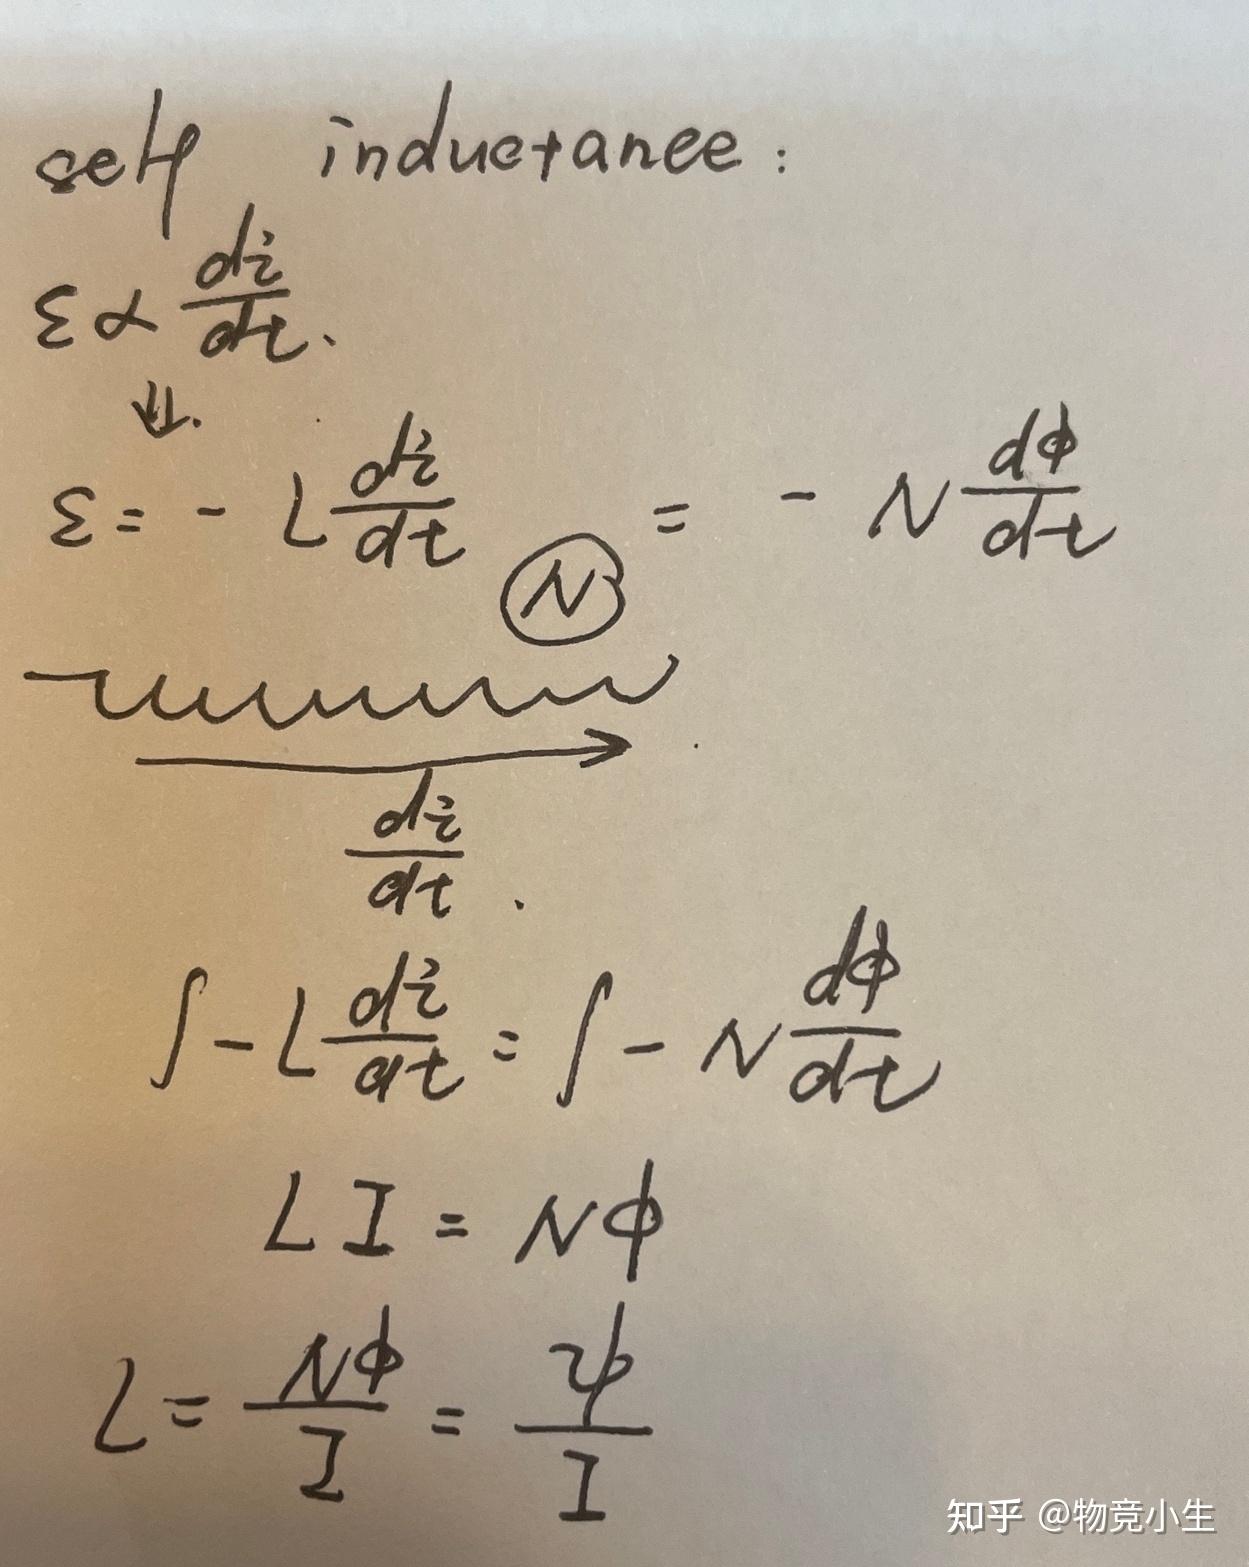 self inductance:
ε ∝ di/dt.
⇓.
ε = - L di/dt = - N dϕ/dt
N
di/dt.
∫ - L di/dt = ∫ - N dϕ/dt
L I = Nϕ
L = Nϕ/I = ψ/I
知乎 @物竞小生